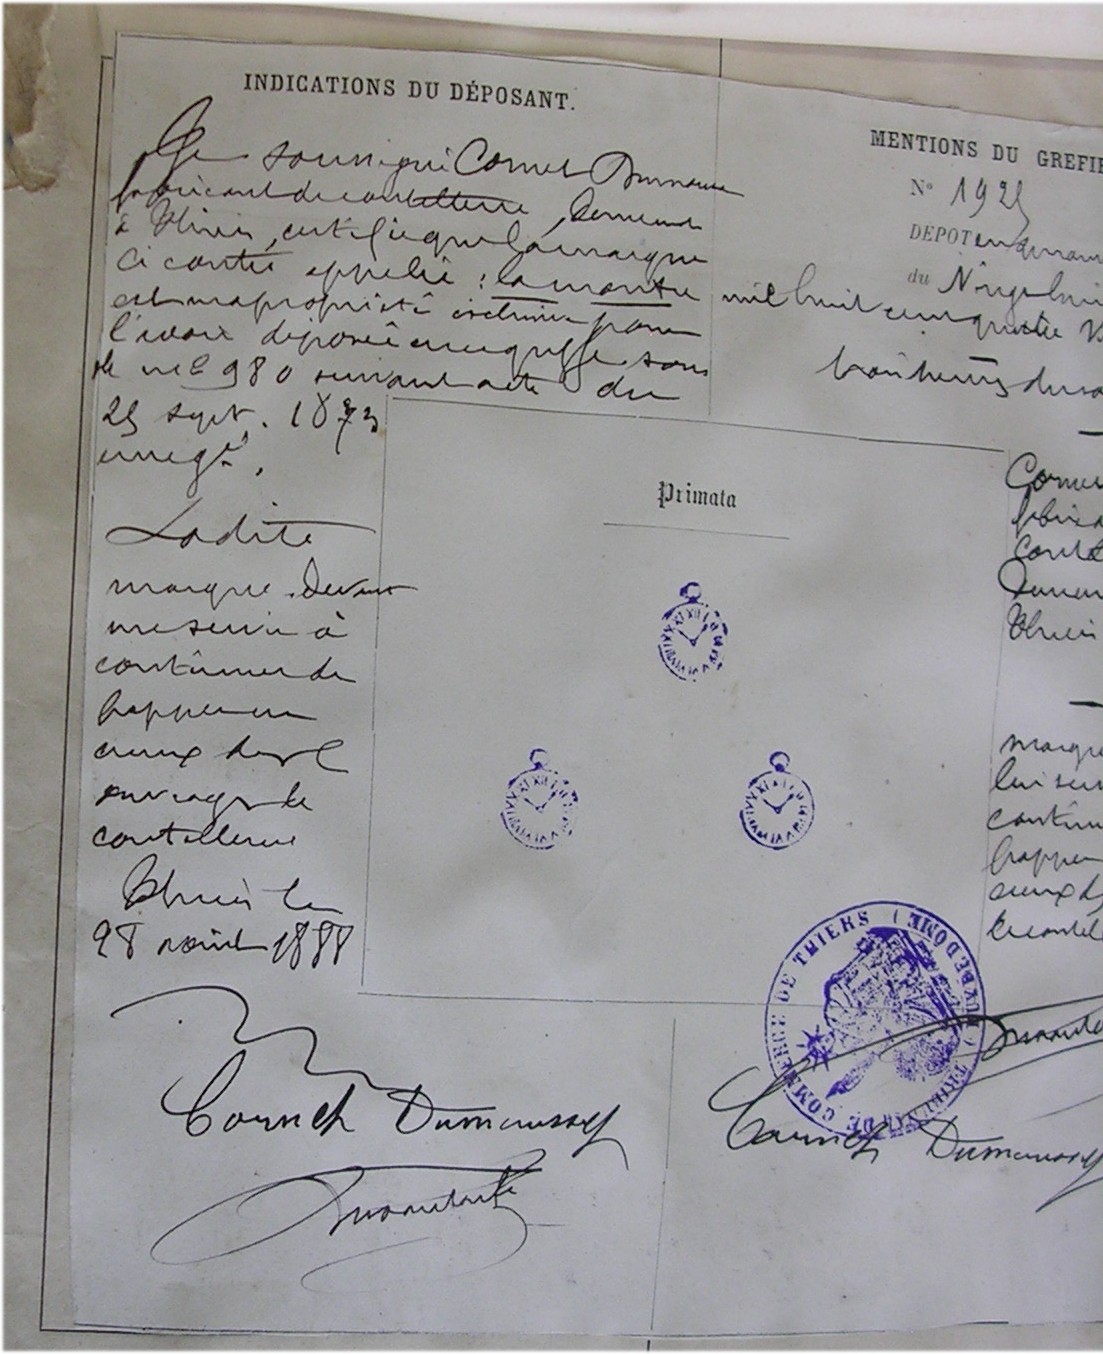 INDICATIONS DU DÉPOSANT.
Je soussigné Cornet Dumousse
fabricant de coutellerie, demeurant
à Thiers, certifie que la marque
ci contre appelée : la montre
est ma propriété exclusive pour
l'avoir déposée au greffe sous
le n° 980 suivant acte du
25 sept. 1873
enreg.
Ladite
marque devant
me servir à
continuer de
frapper en
creux des
ouvrages de
coutellerie
Thiers le
28 août 1888
Cornet Dumousse
MENTIONS DU GREFFI
N° 1925
DÉPOT
du Vingt huit
mil huit cent quatre V
trois heures du so
Primata
XII
Corne
fabri
Coute
Demeu
Thiers
marqu
lui ser
continu
frapper
creux d
de coutel
TRIBUNAL DE COMMERCE DE THIERS (PUY DE DOME)
Cornet Dumousse